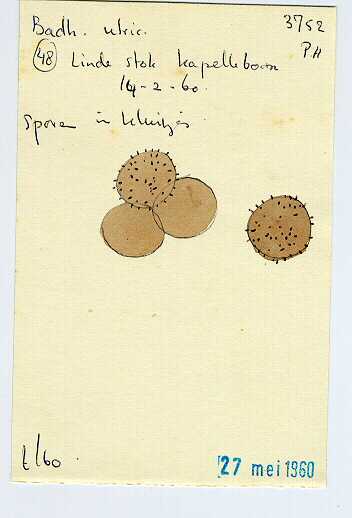 Badh. utric.
3752
P.H
48 Linde stok kapelleboom
14-2-60.
Sporen in kluitjes
t/60
27 mei 1960